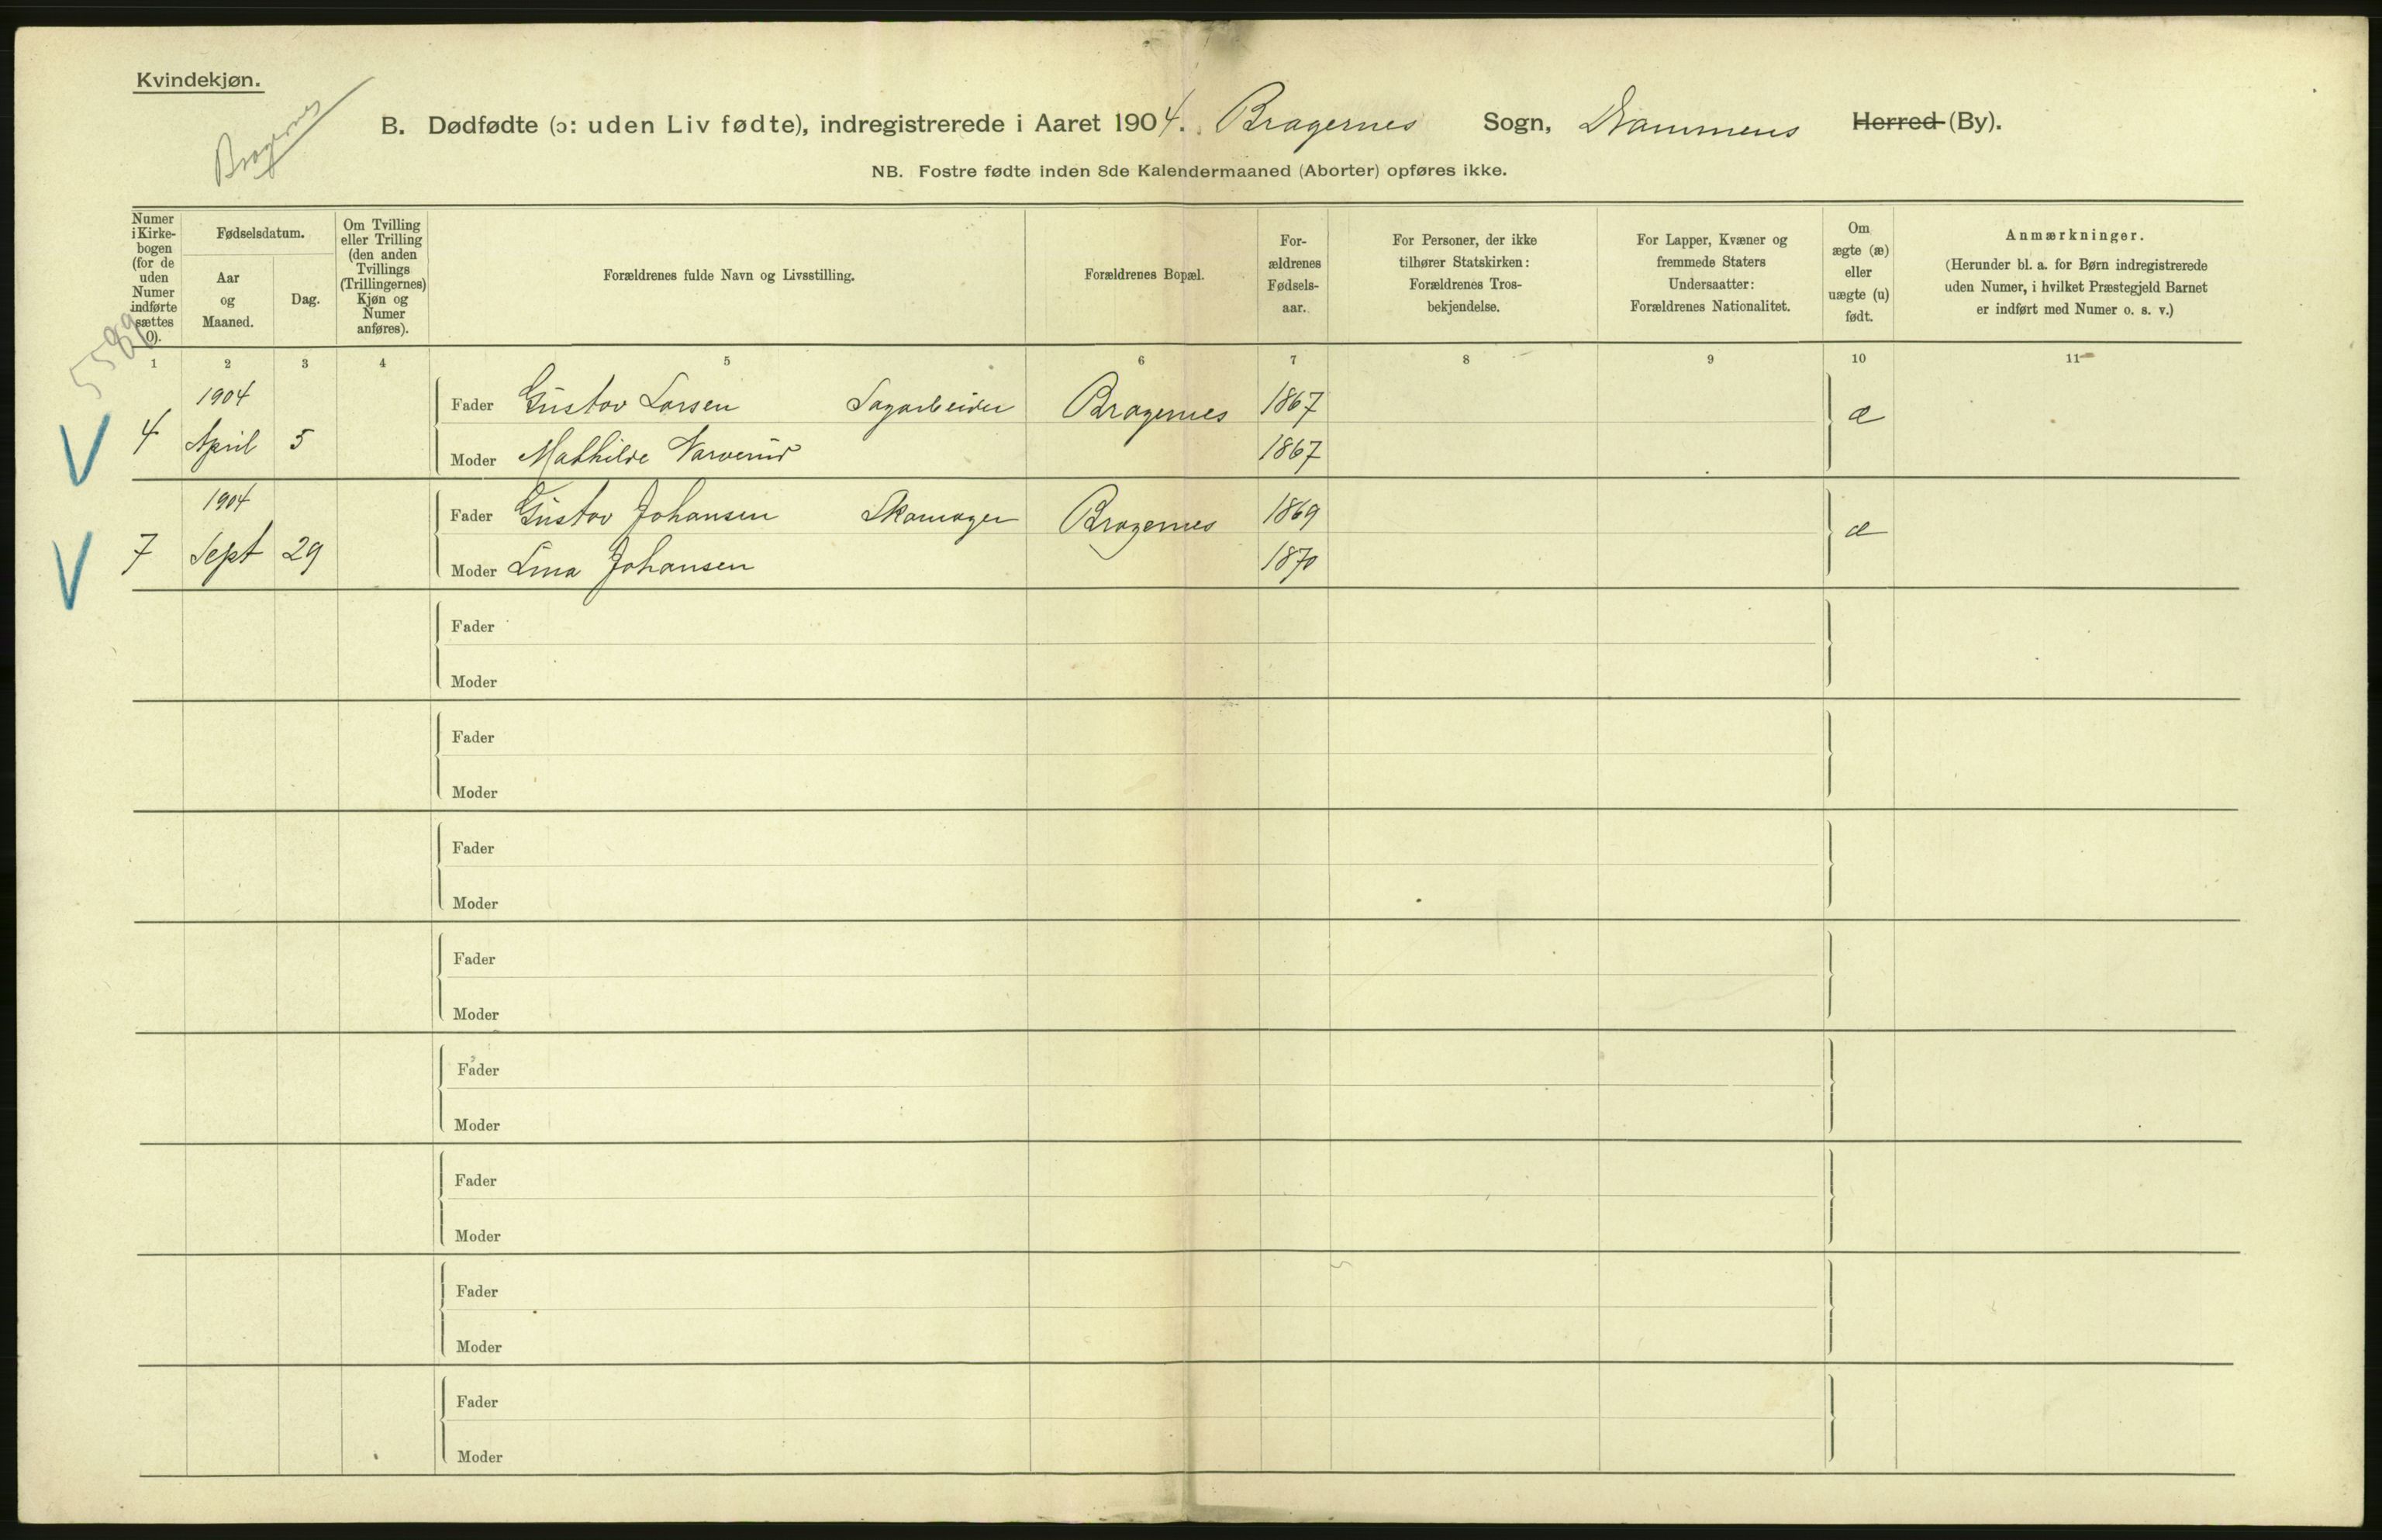 Kvindekjøn.
Bragernes
B. Dødfødte (ɔ: uden Liv fødte), indregistrerede i Aaret 1904. Bragernes Sogn, Drammens Herred (By).
NB. Fostre fødte inden 8de Kalendermaaned (Aborter) opføres ikke.
Numer i Kirke-bogen (for de uden Numer indførte sættes 0).
Fødselsdatum.
Aar og Maaned.
Dag.
Om Tvilling eller Trilling (den anden Tvillings (Trillingernes) Kjøn og Numer anføres).
Forældrenes fulde Navn og Livsstilling.
Forældrenes Bopæl.
For-ældrenes Fødsels-aar.
For Personer, der ikke tilhører Statskirken: Forældrenes Tros-bekjendelse.
For Lapper, Kvæner og fremmede Staters Undersaatter: Forældrenes Nationalitet.
Om ægte (æ) eller uægte (u) født.
Anmærkninger.
(Herunder bl. a. for Børn indregistrerede uden Numer, i hvilket Præstegjeld Barnet er indført med Numer o. s. v.)
1 2 3 4 5 6 7 8 9 10 11
1904
Fader Gustav Larsen Sagarbeider Bragernes 1867 æ
4 April 5
Moder Mathilde 1867
1904
Fader Gustav Johansen Skomager Bragernes 1869 æ
7 Sept 29
Moder Lina Johansen 1870
Fader
Moder
Fader
Moder
Fader
Moder
Fader
Moder
Fader
Moder
Fader
Moder
Fader
Moder
Fader
Moder